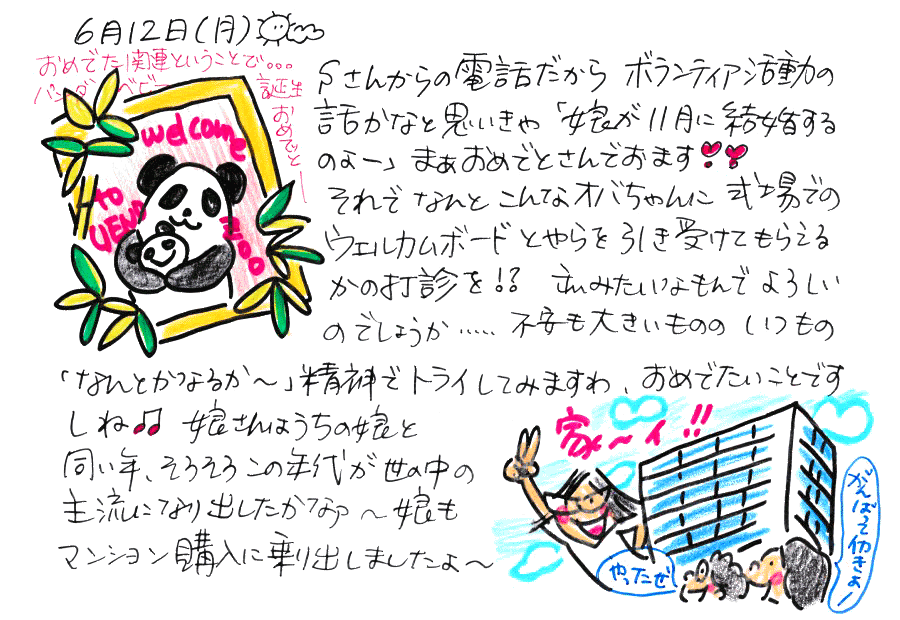 6月12日(月)
おめでた関連ということで…
パンダベビー誕生
おめでとー
welcome
to
UENO
ZOO
Sさんからの電話だから ボランティア活動の
話かなと思いきや「娘が11月に結婚する
のよー」まぁおめでとさんでおます
それで なんと こんなオバちゃんに 式場での
ウェルカムボードとやらを引き受けてもらえる
かの打診を!? さいみたいなもんで よろしい
のでしょうか……不安も大きいものの いつもの
「なんとかなるか〜」精神でトライしてみますわ、おめでたいことです
しね♫ 娘さんはうちの娘と
同い年、そろそろこの年代が世の中の
主流になり出したかなァ〜娘も
マンション購入に乗り出しましたよ〜
家が〜イ!!
やったぜ
がんばって仂きよー